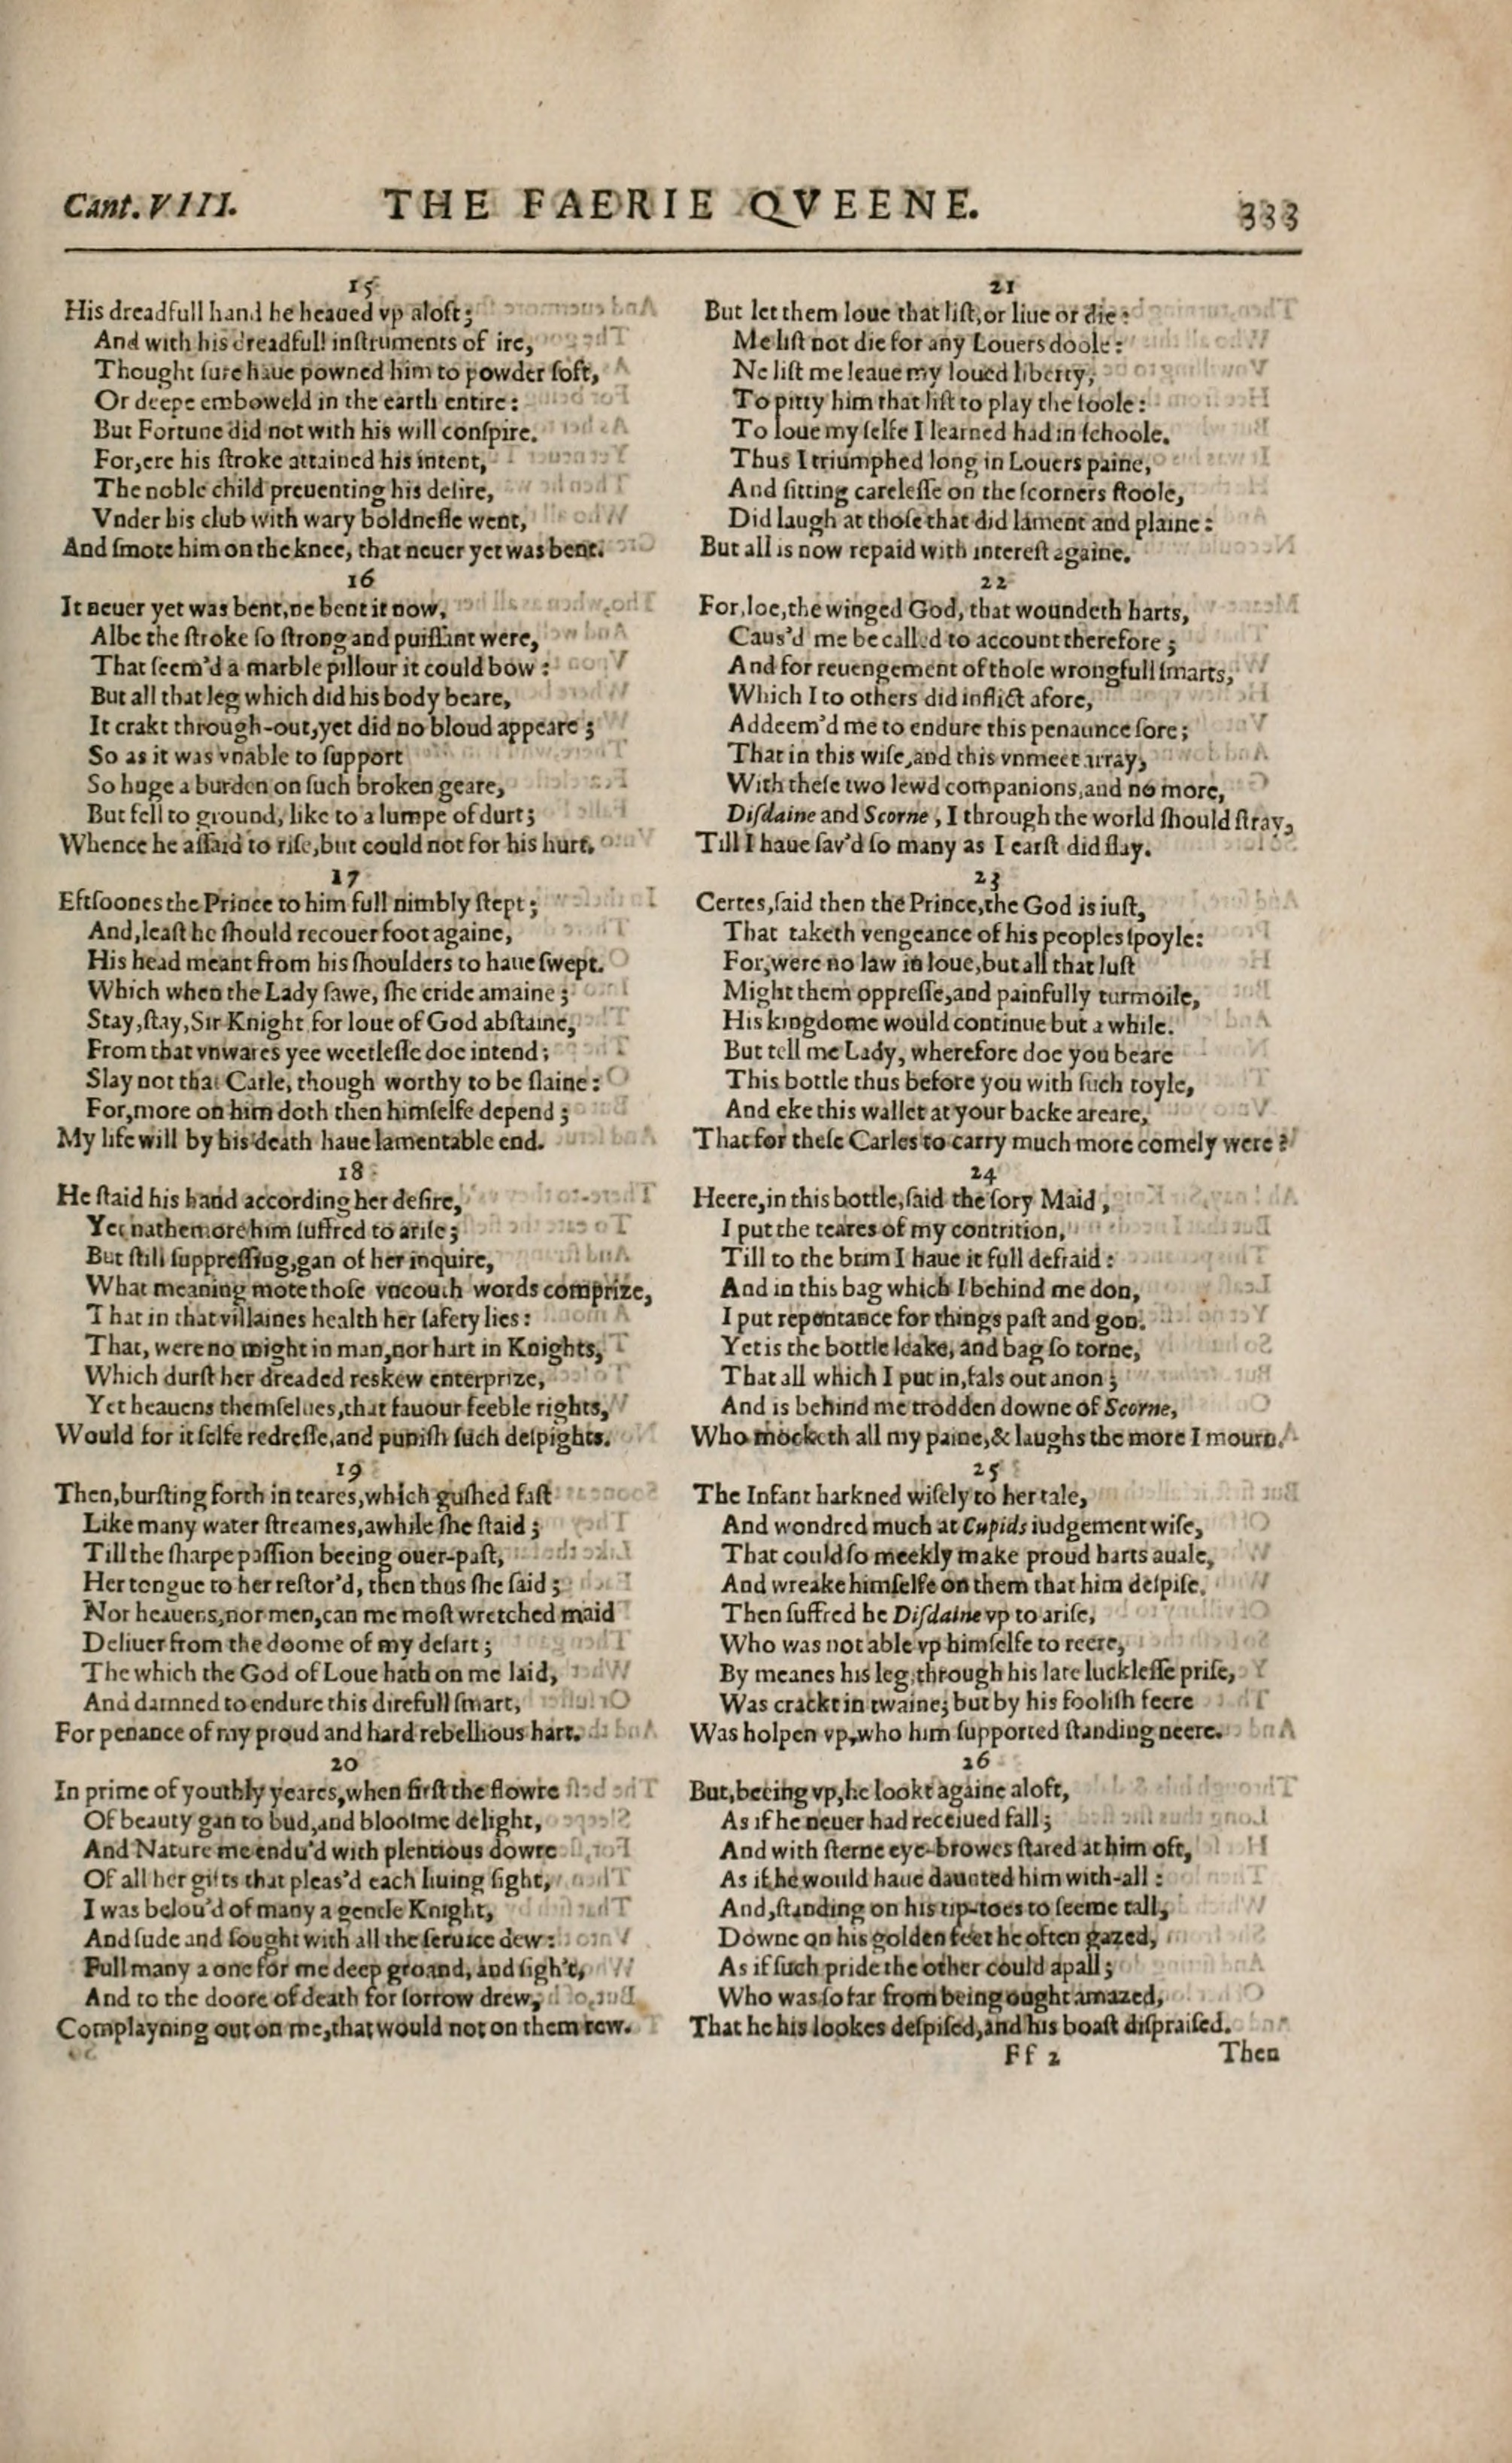 Cant. VIII. THE FAERIE QVEENE. 333
15
His dreadfull hand he heaued vp aloft;
And with his dreadfull inſtruments of ire,
Thought ſure haue powned him to powder ſoft,
Or deepe emboweld in the earth entire:
But Fortune did not with his will conſpire.
For, ere his ſtroke attained his intent,
The noble child preuenting his deſire,
Vnder his club with wary boldneſſe went,
And ſmote him on the knee, that neuer yet was bent.
16
It neuer yet was bent, ne bent it now,
Albe the ſtroke ſo ſtrong and puiſſant were,
That ſeem'd a marble pillour it could bow:
But all that leg which did his body beare,
It crakt through-out, yet did no bloud appeare;
So as it was vnable to ſupport
So huge a burden on ſuch broken geare,
But fell to ground, like to a lumpe of durt;
Whence he aſſaid to riſe, but could not for his hurt.
17
Eftſoones the Prince to him full nimbly ſtept;
And, leaſt he ſhould recouer foot againe,
His head meant from his ſhoulders to haue ſwept.
Which when the Lady ſawe, ſhe cride amaine;
Stay, ſtay, Sir Knight for loue of God abſtaine,
From that vnwares yee weetleſſe doe intend;
Slay not that Carle, though worthy to be ſlaine:
For, more on him doth then himſelfe depend;
My life will by his death haue lamentable end.
18
He ſtaid his hand according her deſire,
Yet nathemore him ſuffred to ariſe;
But ſtill ſuppreſſing, gan of her inquire,
What meaning mote thoſe vncouth words comprize,
That in that villaines health her ſafety lies:
That, were no might in man, nor hart in Knights,
Which durſt her dreaded reskew enterprize,
Yet heauens themſelues, that fauour feeble rights,
Would for it ſelfe redreſſe, and puniſh ſuch deſpights.
19
Then, burſting forth in teares, which guſhed faſt
Like many water ſtreames, awhile ſhe ſtaid;
Till the ſharpe paſſion beeing ouer-paſt,
Her tongue to her reſtor'd, then thus ſhe ſaid;
Nor heauens, nor men, can me moſt wretched maid
Deliuer from the doome of my deſart;
The which the God of Loue hath on me laid,
And damned to endure this direfull ſmart,
For penance of my proud and hard rebellious hart.
20
In prime of youthly yeares, when firſt the flowre
Of beauty gan to bud, and blooſme delight,
And Nature me endu'd with plentious dowre
Of all her gifts that pleas'd each liuing ſight,
I was belou'd of many a gentle Knight,
And ſude and ſought with all the ſeruice dew:
Full many a one for me deep groand, and ſigh't,
And to the doore of death for ſorrow drew,
Complayning out on me, that would not on them rew.
21
But let them loue that liſt, or liue or die:
Me liſt not die for any Louers doole:
Ne liſt me leaue my loued liberty,
To pitty him that liſt to play the foole:
To loue my ſelfe I learned had in ſchoole.
Thus I triumphed long in Louers paine,
And ſitting careleſſe on the ſcorners ſtoole,
Did laugh at thoſe that did lament and plaine:
But all is now repaid with intereſt againe.
22
For, loe, the winged God, that woundeth harts,
Caus'd me be called to account therefore;
And for reuengement of thoſe wrongfull ſmarts,
Which I to others did inflict afore,
Addeem'd me to endure this penaunce ſore;
That in this wiſe, and this vnmeet array,
With theſe two lewd companions, and no more,
Diſdaine and Scorne, I through the world ſhould ſtray,
Till I haue ſav'd ſo many as I earſt did ſlay.
23
Certes, ſaid then the Prince, the God is iuſt,
That taketh vengeance of his peoples ſpoyle:
For, were no law in loue, but all that luſt
Might them oppreſſe, and painfully turmoile,
His kingdome would continue but a while.
But tell me Lady, wherefore doe you beare
This bottle thus before you with ſuch toyle,
And eke this wallet at your backe areare,
That for theſe Carles to carry much more comely were?
24
Heere, in this bottle, ſaid the ſory Maid,
I put the teares of my contrition,
Till to the brim I haue it full defraid:
And in this bag which I behind me don,
I put repentance for things paſt and gon.
Yet is the bottle leake, and bag ſo torne,
That all which I put in, fals out anon;
And is behind me trodden downe of Scorne,
Who mocketh all my paine, & laughs the more I mourn.
25
The Infant harkned wiſely to her tale,
And wondred much at Cupids iudgement wiſe,
That could ſo meekly make proud harts auale,
And wreake himſelfe on them that him deſpiſe.
Then ſuffred he Diſdaine vp to ariſe,
Who was not able vp himſelfe to reere,
By meanes his leg, through his late luckleſſe priſe,
Was crackt in twaine; but by his fooliſh feere
Was holpen vp, who him ſupported ſtanding neere.
26
But, beeing vp, he lookt againe aloft,
As if he neuer had receiued fall;
And with ſterne eye-browes ſtared at him oft,
As if he would haue daunted him with-all:
And, ſtanding on his tip-toes to ſeeme tall,
Downe on his golden feet he often gazed,
As if ſuch pride the other could apall;
Who was ſo far from being ought amazed,
That he his lookes deſpiſed, and his boaſt diſpraiſed.
Ff 2 Then